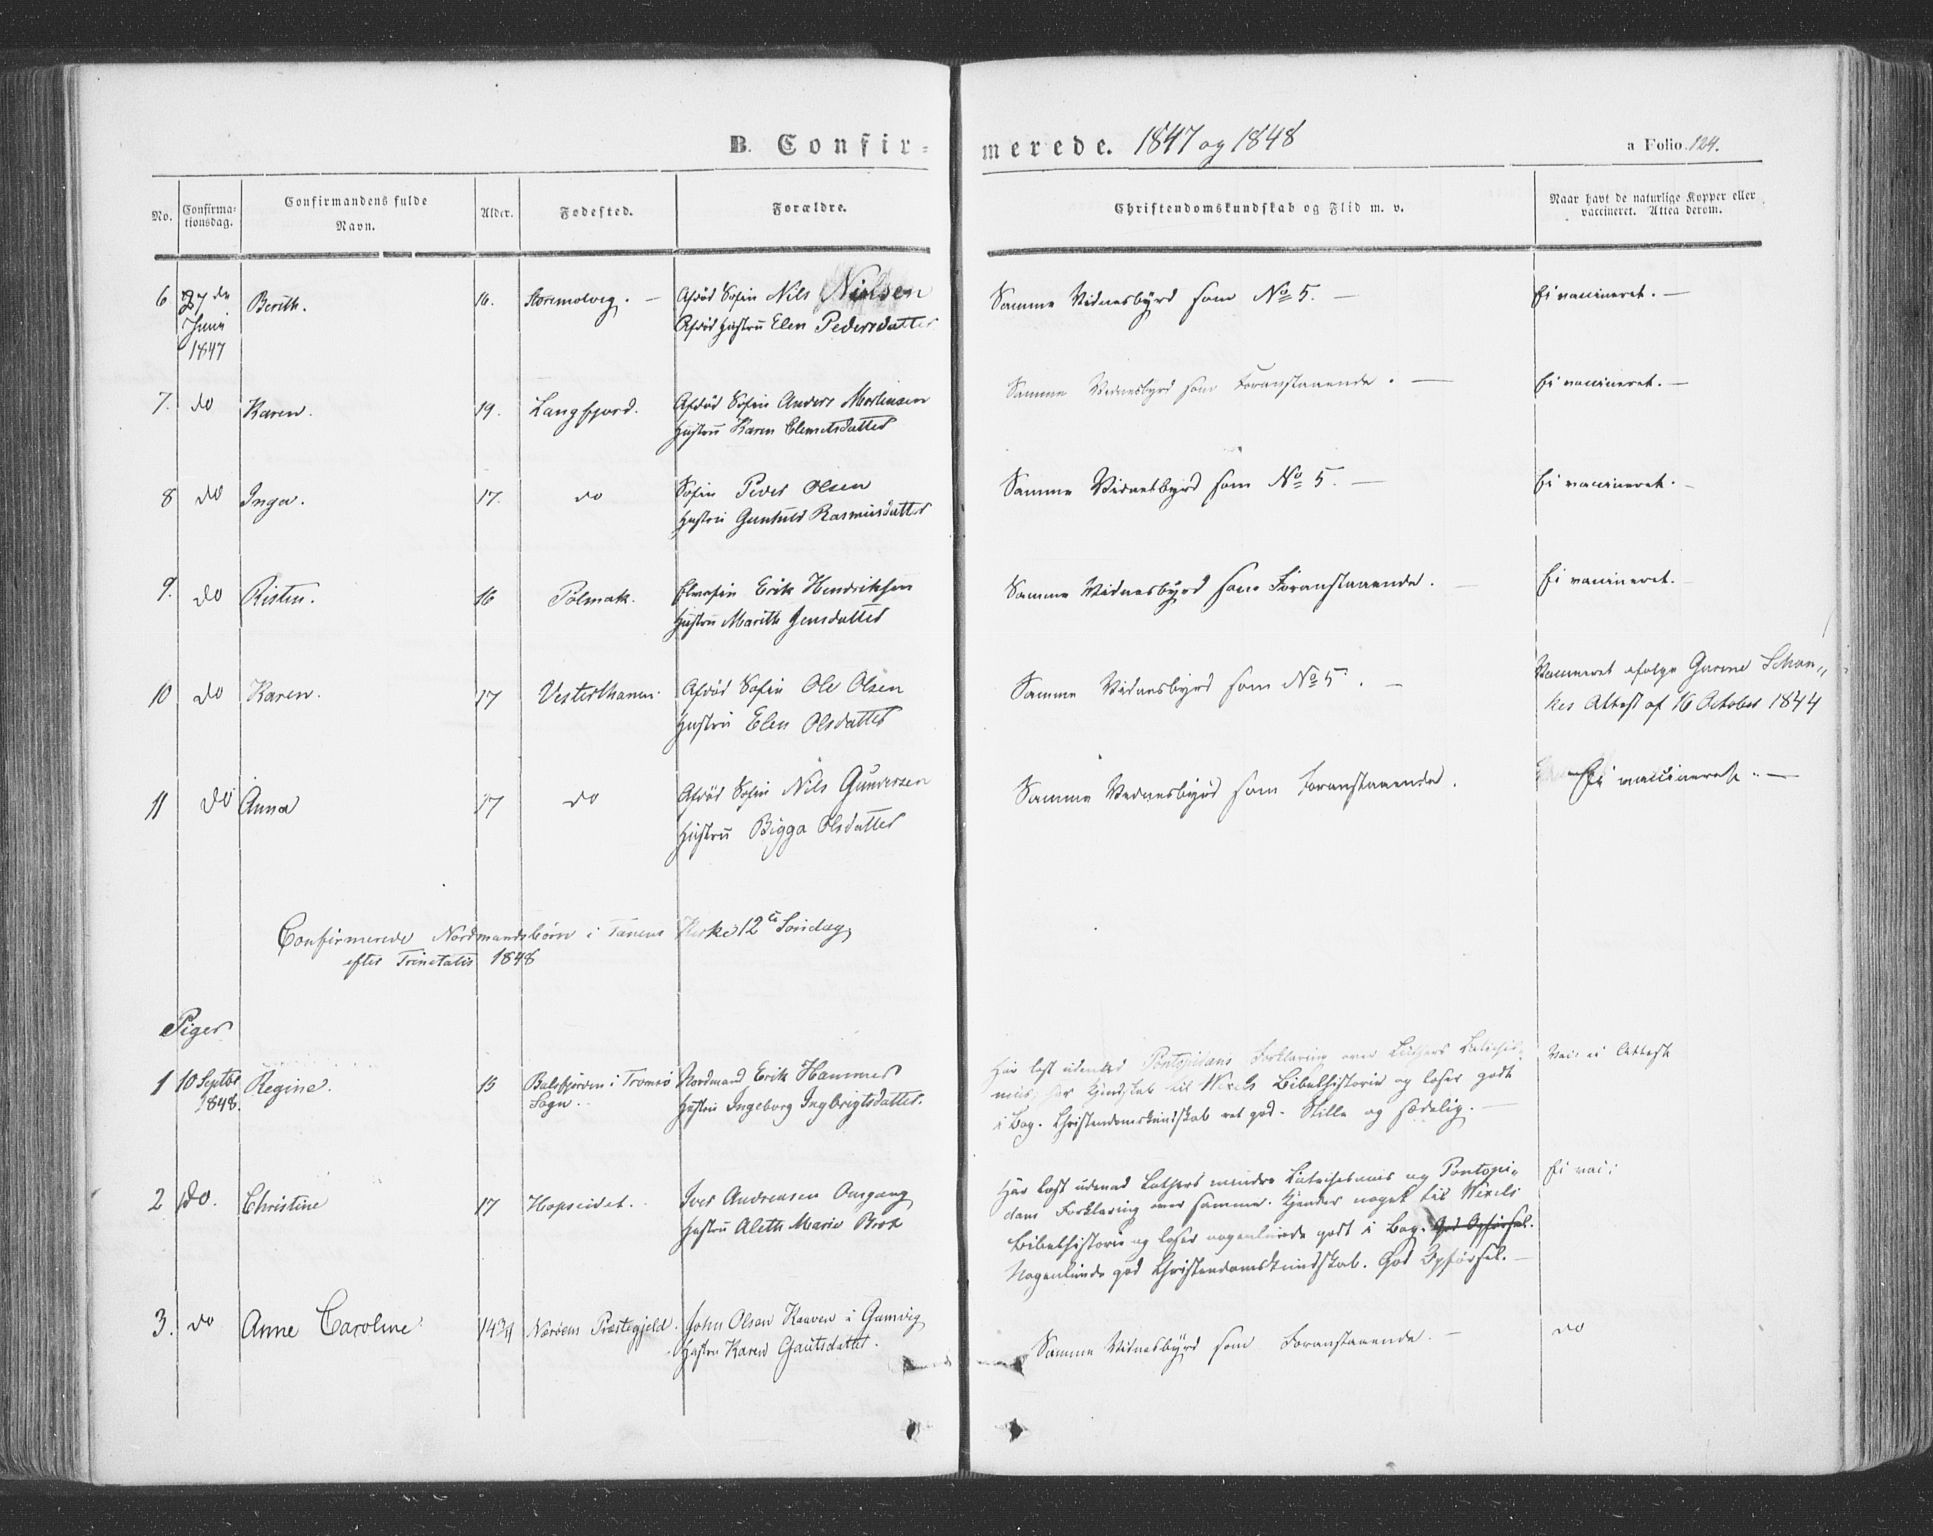 B. Confirmerede. 1847 og 1848
a Folio 124.
No. Confirmationsdag. Confirmandens fulde Navn. Alder. Fødested. Forældre. Christendomskundskab og Flid m. v. Naar havt de naturlige Kopper eller vaccineret. Attest derom.
6 27de Juni 1847 Berith. 16. Storemolvig. Afdød Søfin Nils Nielsen
Afdød Hustru Elen Pedersdatter
Samme Vidnesbyrd som No 5. — Ei vaccineret. —
7. do Karen. 19. Langfjord. Afdød Søfin Anders Mortensen
Hustru Karen Clemetsdatter
Samme Vidnesbyrd som Foranstaaende. — Ei vaccineret. —
8 do Inga. 17. do Søfin Peder Olsen
Hustru Gunhild Rasmusdatter
Samme Vidnesbyrd som No 5. — Ei vaccineret. —
9. do Risten. 16 Polmak. Elvefin Erik Hendriksen
Hustru Marith Jensdatter
Samme Vidnesbyrd som Foranstaaende. — Ei vaccineret. —
10 do Karen. 17 Vesterthanen. Afdød Søfin Ole Olsen
Hustru Elen Olsdatter
Samme Vidnesbyrd som No 5. — Vaccineret efolge Gurine Schan„
kes Attest af 16 October 1844
11 do Anna 17 do Afdød Søfin Nils Gundersen
Hustru Bigga Olsdatter
Samme Vidnesbyrd som Foranstaaende. Ei vaccineret. —
Confirmerede Nordmandsbørn i Tanens Kirke 12te Søndag
efter Trinetatis 1848
Piger
1 10 Septbr 1848. Regine. 15 Balsfjorden i Tromsø Sogn. Nordmand Erik Hammer
Hustru Ingeborg Ingbrigtsdatter.
Har læst udenad Pontopidans Forklaring over Luthers Katechis„
mus, har Kjendskab til Wexels Bibelhistorie og læser godt
i Bog. Christendomskundskab ret god. Stille og sædelig. —
Vac: u: Attest
2 do. Christine 17 Hopseidet. Iver Andreasen Omgang
Hustru Aleth Marie Brok
Har læst udenad Luthers mindre Katechismus og Pontopi„
dans Forklaring over samme. Kjender noget til Wexels
Bibelhistorie og læser nogenlunde godt i Bog. God Opførsel.
Nogenlunde god Christendomskundskab. God Opførsel. —
Ei vac:
3. do Anne Caroline 14¾ Næsens Præstegjeld. John Olsen Kaaven i Gamvig
Hustru Karen Gautsdatter.
Samme Vidnesbyrd som Foranstaaende. — do